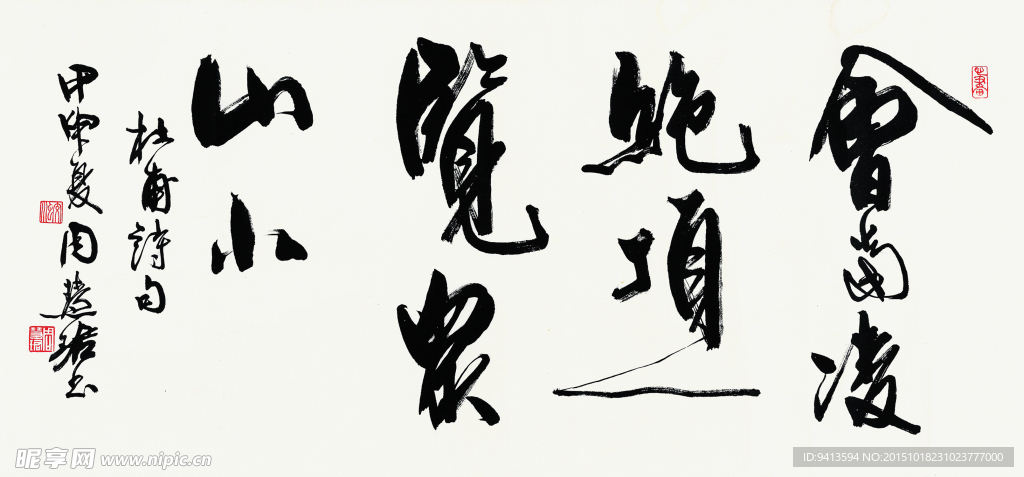 會當凌
絶頂一
覽眾
山小
杜甫詩句
甲申夏周慧珺书
昵享网 www.nipic.cn
ID:9413594 NO:20151018231023777000